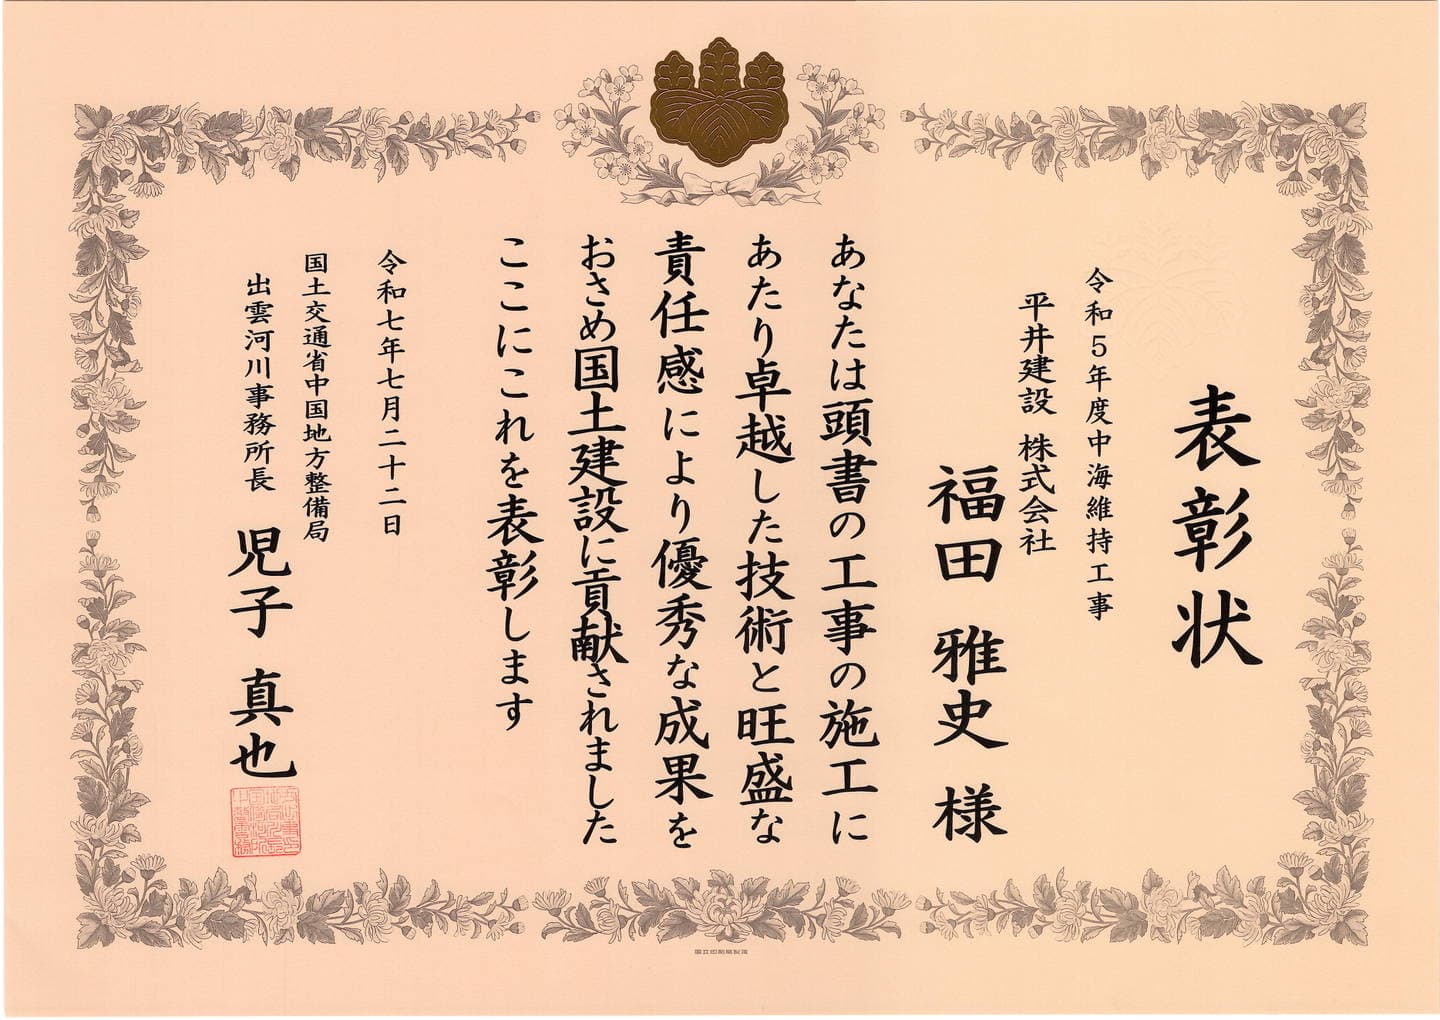 表彰状
令和５年度中海維持工事
平井建設 株式会社
福田 雅史 様
あなたは頭書の工事の施工に
あたり卓越した技術と旺盛な
責任感により優秀な成果を
おさめ国土建設に貢献されました
ここにこれを表彰します
令和七年七月二十二日
国土交通省中国地方整備局
出雲河川事務所長 児子 真也
国立印刷局製造